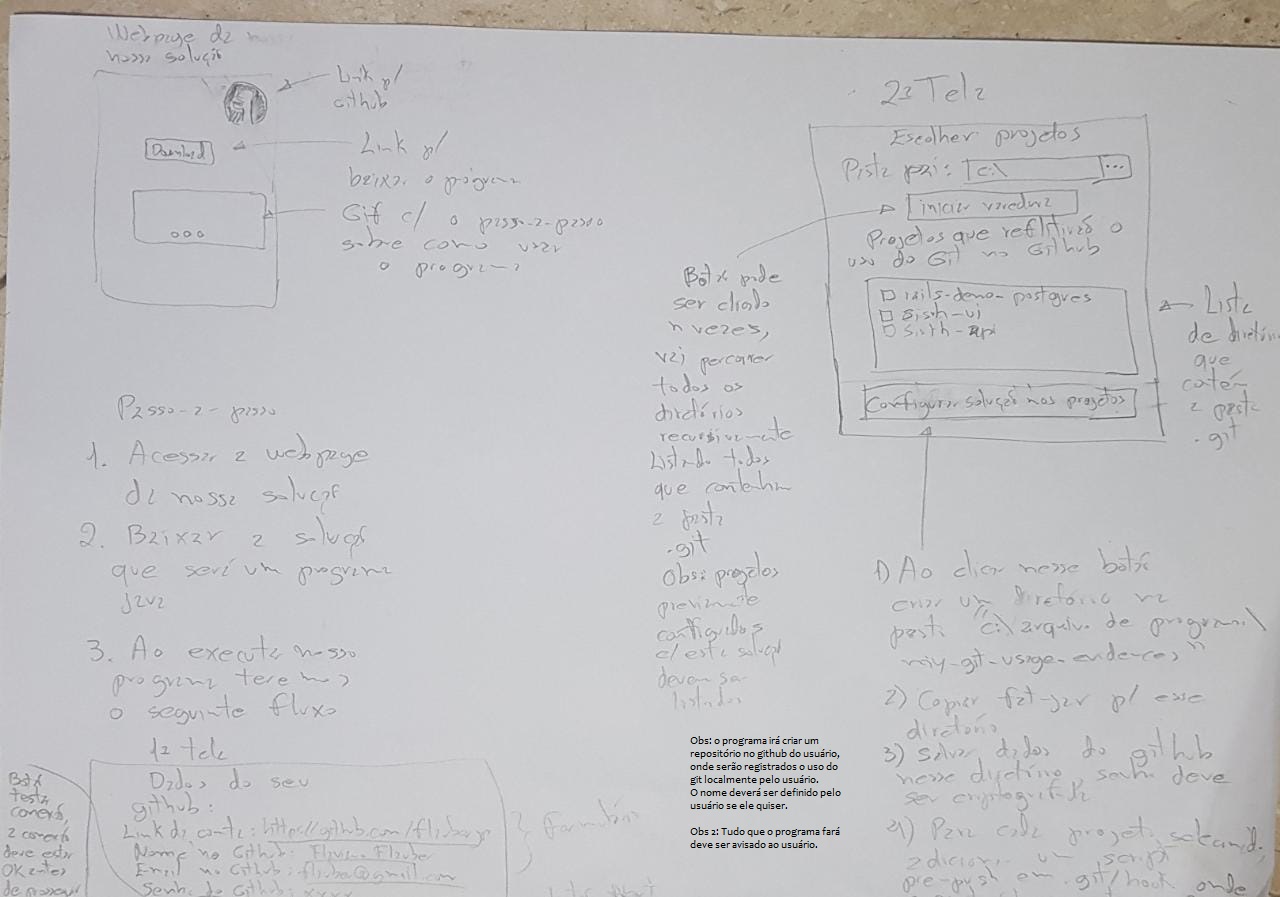 Webpage da
nossa solução
Link p/
Github
Download
Link p/
baixar o programa
Gif c/ o passo-a-passo
sobre como usar
o programa
Passo-a-passo
1. Acessar a webpage
da nossa solução
2. Baixar a solução
que será um programa
java
3. Ao executar nosso
programa teremos
o seguinte fluxo
1a tela
Dados do seu
github:
Link da conta: https://github.com/
Nome no Github:
Email no Github:
Senha do Github: xxxx
Formulário
Botão
testar
conexão,
a conexão
deve estar
OK antes
de
2a Tela
Escolher projetos
Pasta pai: C:\ ...
iniciar varredura
Projetos que refletirão o
uso do Git no Github
rails-demo-postgres
sisth-ui
sisth-api
Configurar solução nos projetos
Botão pode
ser clicado
n vezes,
vai percorrer
todos os
diretórios
recursivamente
Listando todos
que contenham
a pasta
.git
Obs: projetos
previamente
configurados
c/ esta solução
devem ser
listados
Lista
de diretórios
que
contém
a pasta
.git
1) Ao clicar nesse botão
criar um diretório na
pasta "c:\arquivo de programa\
my-git-usage-evidences"
2) Copiar fat-jar p/ esse
diretório
3) Salvar dados do github
nesse diretório, senha deve
ser criptografada
4) Para cada projeto selecionado,
adicionar um script
pre-push em .git/hook onde
Obs: o programa irá criar um
repositório no github do usuário,
onde serão registrados o uso do
git localmente pelo usuário.
O nome deverá ser definido pelo
usuário se ele quiser.
Obs 2: Tudo que o programa fará
deve ser avisado ao usuário.